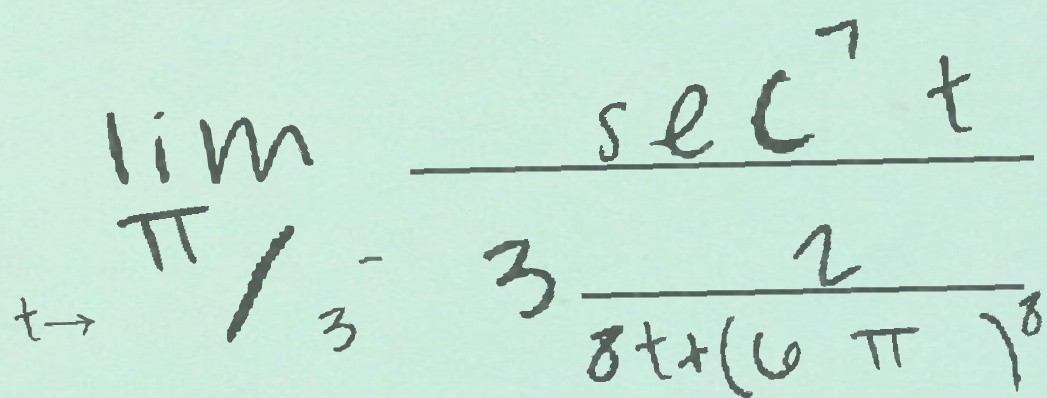 \lim_{t \to \pi/3^-} \frac{\sec^7 t}{3 \frac{2}{8t+(6\pi)^8}}